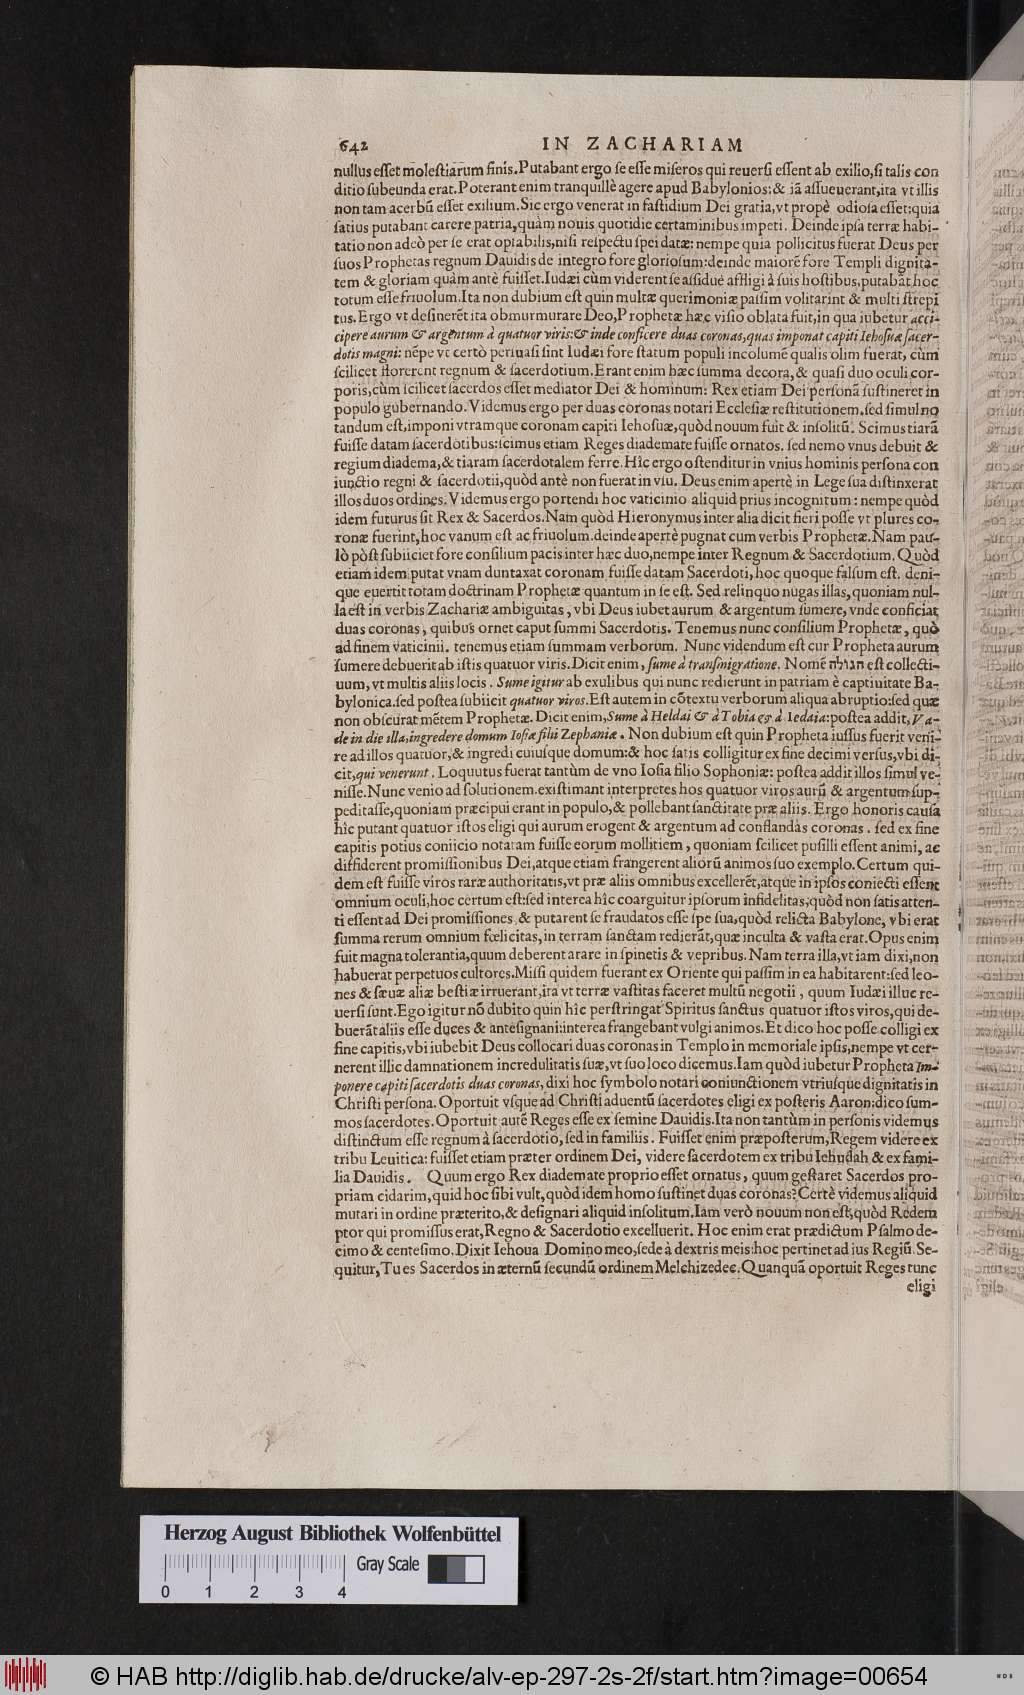 642 IN ZACHARIAM
nullus eſſet moleſtiarum finis. Putabant ergo ſe eſſe miſeros qui reuerſi eſſent ab exilio, ſi talis con
ditio ſubeunda erat. Poterant enim tranquillè agere apud Babylonios: & iã aſſueuerant, ita vt illis
non tam acerbũ eſſet exilium. Sic ergo venerat in faſtidium Dei gratia, vt propè odioſa eſſet: quia
ſatius putabant carere patria, quàm nouis quotidie certaminibus impeti. Deinde ipſa terræ habi-
tatio non adeò per ſe erat optabilis, niſi reſpectu ſpei datæ: nempe quia pollicitus fuerat Deus per
ſuos Prophetas regnum Dauidis de integro fore glorioſum: deinde maiorẽ fore Templi dignita-
tem & gloriam quàm antè fuiſſet. Iudæi cùm viderent ſe aſſiduè affligi à ſuis hoſtibus, putabãt hoc
totum eſſe friuolum. Ita non dubium eſt quin multæ querimoniæ paſſim volitarint & multi ſtrepi
tus. Ergo vt deſinerẽt ita obmurmurare Deo, Prophetæ hæc viſio oblata fuit, in qua iubetur acci-
cipere aurum & argentum à quatuor viris: & inde conficere duas coronas, quas imponat capiti Iehoſuæ ſacer-
dotis magni: nẽpe vt certò perſuaſi ſint Iudæi fore ſtatum populi incolumẽ qualis olim fuerat, cùm
ſcilicet florerent regnum & ſacerdotium. Erant enim hæc ſumma decora, & quaſi duo oculi cor-
poris, cùm ſcilicet ſacerdos eſſet mediator Dei & hominum: Rex etiam Dei perſonã ſuſtineret in
populo gubernando. Videmus ergo per duas coronas notari Eccleſiæ reſtitutionem, ſed ſimul no
tandum eſt, imponi vtramque coronam capiti Iehoſuæ, quòd nouum fuit & inſolitũ. Scimus tiarã
fuiſſe datam ſacerdotibus: ſcimus etiam Reges diademate fuiſſe ornatos. ſed nemo vnus debuit &
regium diadema, & tiaram ſacerdotalem ferre. Hîc ergo oſtenditur in vnius hominis perſona con
iunctio regni & ſacerdotii, quòd antè non fuerat in vſu. Deus enim apertè in Lege ſua diſtinxerat
illos duos ordines. Videmus ergo portendi hoc vaticinio aliquid prius incognitum: nempe quòd
idem futurus ſit Rex & Sacerdos. Nam quòd Hieronymus inter alia dicit fieri poſſe vt plures co-
ronæ fuerint, hoc vanum eſt ac friuolum. deinde apertè pugnat cum verbis Prophetæ. Nam pau-
lò pòſt ſubiiciet fore conſilium pacis inter hæc duo, nempe inter Regnum & Sacerdotium. Quòd
etiam idem putat vnam duntaxat coronam fuiſſe datam Sacerdoti, hoc quoque falſum eſt. deni-
que euertit totam doctrinam Prophetæ quantum in ſe eſt. Sed relinquo nugas illas, quoniam nul-
la eſt in verbis Zachariæ ambiguitas, vbi Deus iubet aurum & argentum ſumere, vnde conficiat
duas coronas, quibus ornet caput ſummi Sacerdotis. Tenemus nunc conſilium Prophetæ, quò
ad finem vaticinii. tenemus etiam ſummam verborum. Nunc videndum eſt cur Propheta aurum
ſumere debuerit ab iſtis quatuor viris. Dicit enim, ſume à tranſmigratione. Nomẽ הגולה eſt collecti-
uum, vt multis aliis locis. Sume igitur ab exulibus qui nunc redierunt in patriam è captiuitate Ba-
bylonica. ſed poſtea ſubiicit quatuor viros. Eſt autem in cõtextu verborum aliqua abruptio: ſed quæ
non obſcurat mẽtem Prophetæ. Dicit enim, Sume à Heldai & à Tobia & à Iedaia: poſtea addit, Va-
de in die illa, ingredere domum Ioſiæ filii Zephaniæ. Non dubium eſt quin Propheta iuſſus fuerit veni-
re ad illos quatuor, & ingredi cuiuſque domum: & hoc ſatis colligitur ex fine decimi verſus, vbi di-
cit, qui venerunt. Loquutus fuerat tantùm de vno Ioſia filio Sophoniæ: poſtea addit illos ſimul ve-
niſſe. Nunc venio ad ſolutionem. exiſtimant interpretes hos quatuor viros aurũ & argentum ſup-
peditaſſe, quoniam præcipui erant in populo, & pollebant ſanctitate præ aliis. Ergo honoris cauſa
hîc putant quatuor iſtos eligi qui aurum erogent & argentum ad conflandas coronas. ſed ex fine
capitis potius coniicio notatam fuiſſe eorum mollitiem, quoniam ſcilicet puſilli eſſent animi, ac
diffiderent promiſſionibus Dei, atque etiam frangerent aliorũ animos ſuo exemplo. Certum qui-
dem eſt fuiſſe viros raræ authoritatis, vt præ aliis omnibus excellerẽt, atque in ipſos coniecti eſſent
omnium oculi, hoc certum eſt: ſed interea hîc coarguitur ipſorum infidelitas, quòd non ſatis atten-
ti eſſent ad Dei promiſſiones, & putarent ſe fraudatos eſſe ſpe ſua, quòd relicta Babylone, vbi erat
ſumma rerum omnium fœlicitas, in terram ſanctam redierãt, quæ inculta & vaſta erat. Opus enim
fuit magna tolerantia, quum deberent arare in ſpinetis & vepribus. Nam terra illa, vt iam dixi, non
habuerat perpetuos cultores. Miſſi quidem fuerant ex Oriente qui paſſim in ea habitarent: ſed leo-
nes & ſæuæ aliæ beſtiæ irruerant, ita vt terræ vaſtitas faceret multũ negotii, quum Iudæi illuc re-
uerſi ſunt. Ego igitur nõ dubito quin hîc perſtringat Spiritus ſanctus quatuor iſtos viros, qui de-
buerãt aliis eſſe duces & anteſignani: interea frangebant vulgi animos. Et dico hoc poſſe colligi ex
fine capitis, vbi iubebit Deus collocari duas coronas in Templo in memoriale ipſis, nempe vt cer-
nerent illic damnationem incredulitatis ſuæ, vt ſuo loco dicemus. Iam quòd iubetur Propheta Im-
ponere capiti ſacerdotis duas coronas, dixi hoc ſymbolo notari coniunctionem vtriuſque dignitatis in
Chriſti perſona. Oportuit vſque ad Chriſti aduentũ ſacerdotes eligi ex poſteris Aaron: dico ſum-
mos ſacerdotes. Oportuit autẽ Reges eſſe ex ſemine Dauidis. Ita non tantùm in perſonis videmus
diſtinctum eſſe regnum à ſacerdotio, ſed in familiis. Fuiſſet enim præpoſterum, Regem videre ex
tribu Leuitica: fuiſſet etiam præter ordinem Dei, videre ſacerdotem ex tribu Iehudah & ex fami-
lia Dauidis. Quum ergo Rex diademate proprio eſſet ornatus, quum geſtaret Sacerdos pro-
priam cidarim, quid hoc ſibi vult, quòd idem homo ſuſtinet duas coronas? Certè videmus aliquid
mutari in ordine præterito, & deſignari aliquid inſolitum. Iam verò nouum non eſt, quòd Redem
ptor qui promiſſus erat, Regno & Sacerdotio excelluerit. Hoc enim erat prædictum Pſalmo de-
cimo & centeſimo. Dixit Iehoua Domino meo, ſede à dextris meis: hoc pertinet ad ius Regiũ. Se-
quitur, Tu es Sacerdos in æternũ ſecundũ ordinem Melchizedec. Quanquã oportuit Reges tunc
eligi
Herzog August Bibliothek Wolfenbüttel
Gray Scale
0 1 2 3 4
© HAB http://diglib.hab.de/drucke/alv-ep-297-2s-2f/start.htm?image=00654